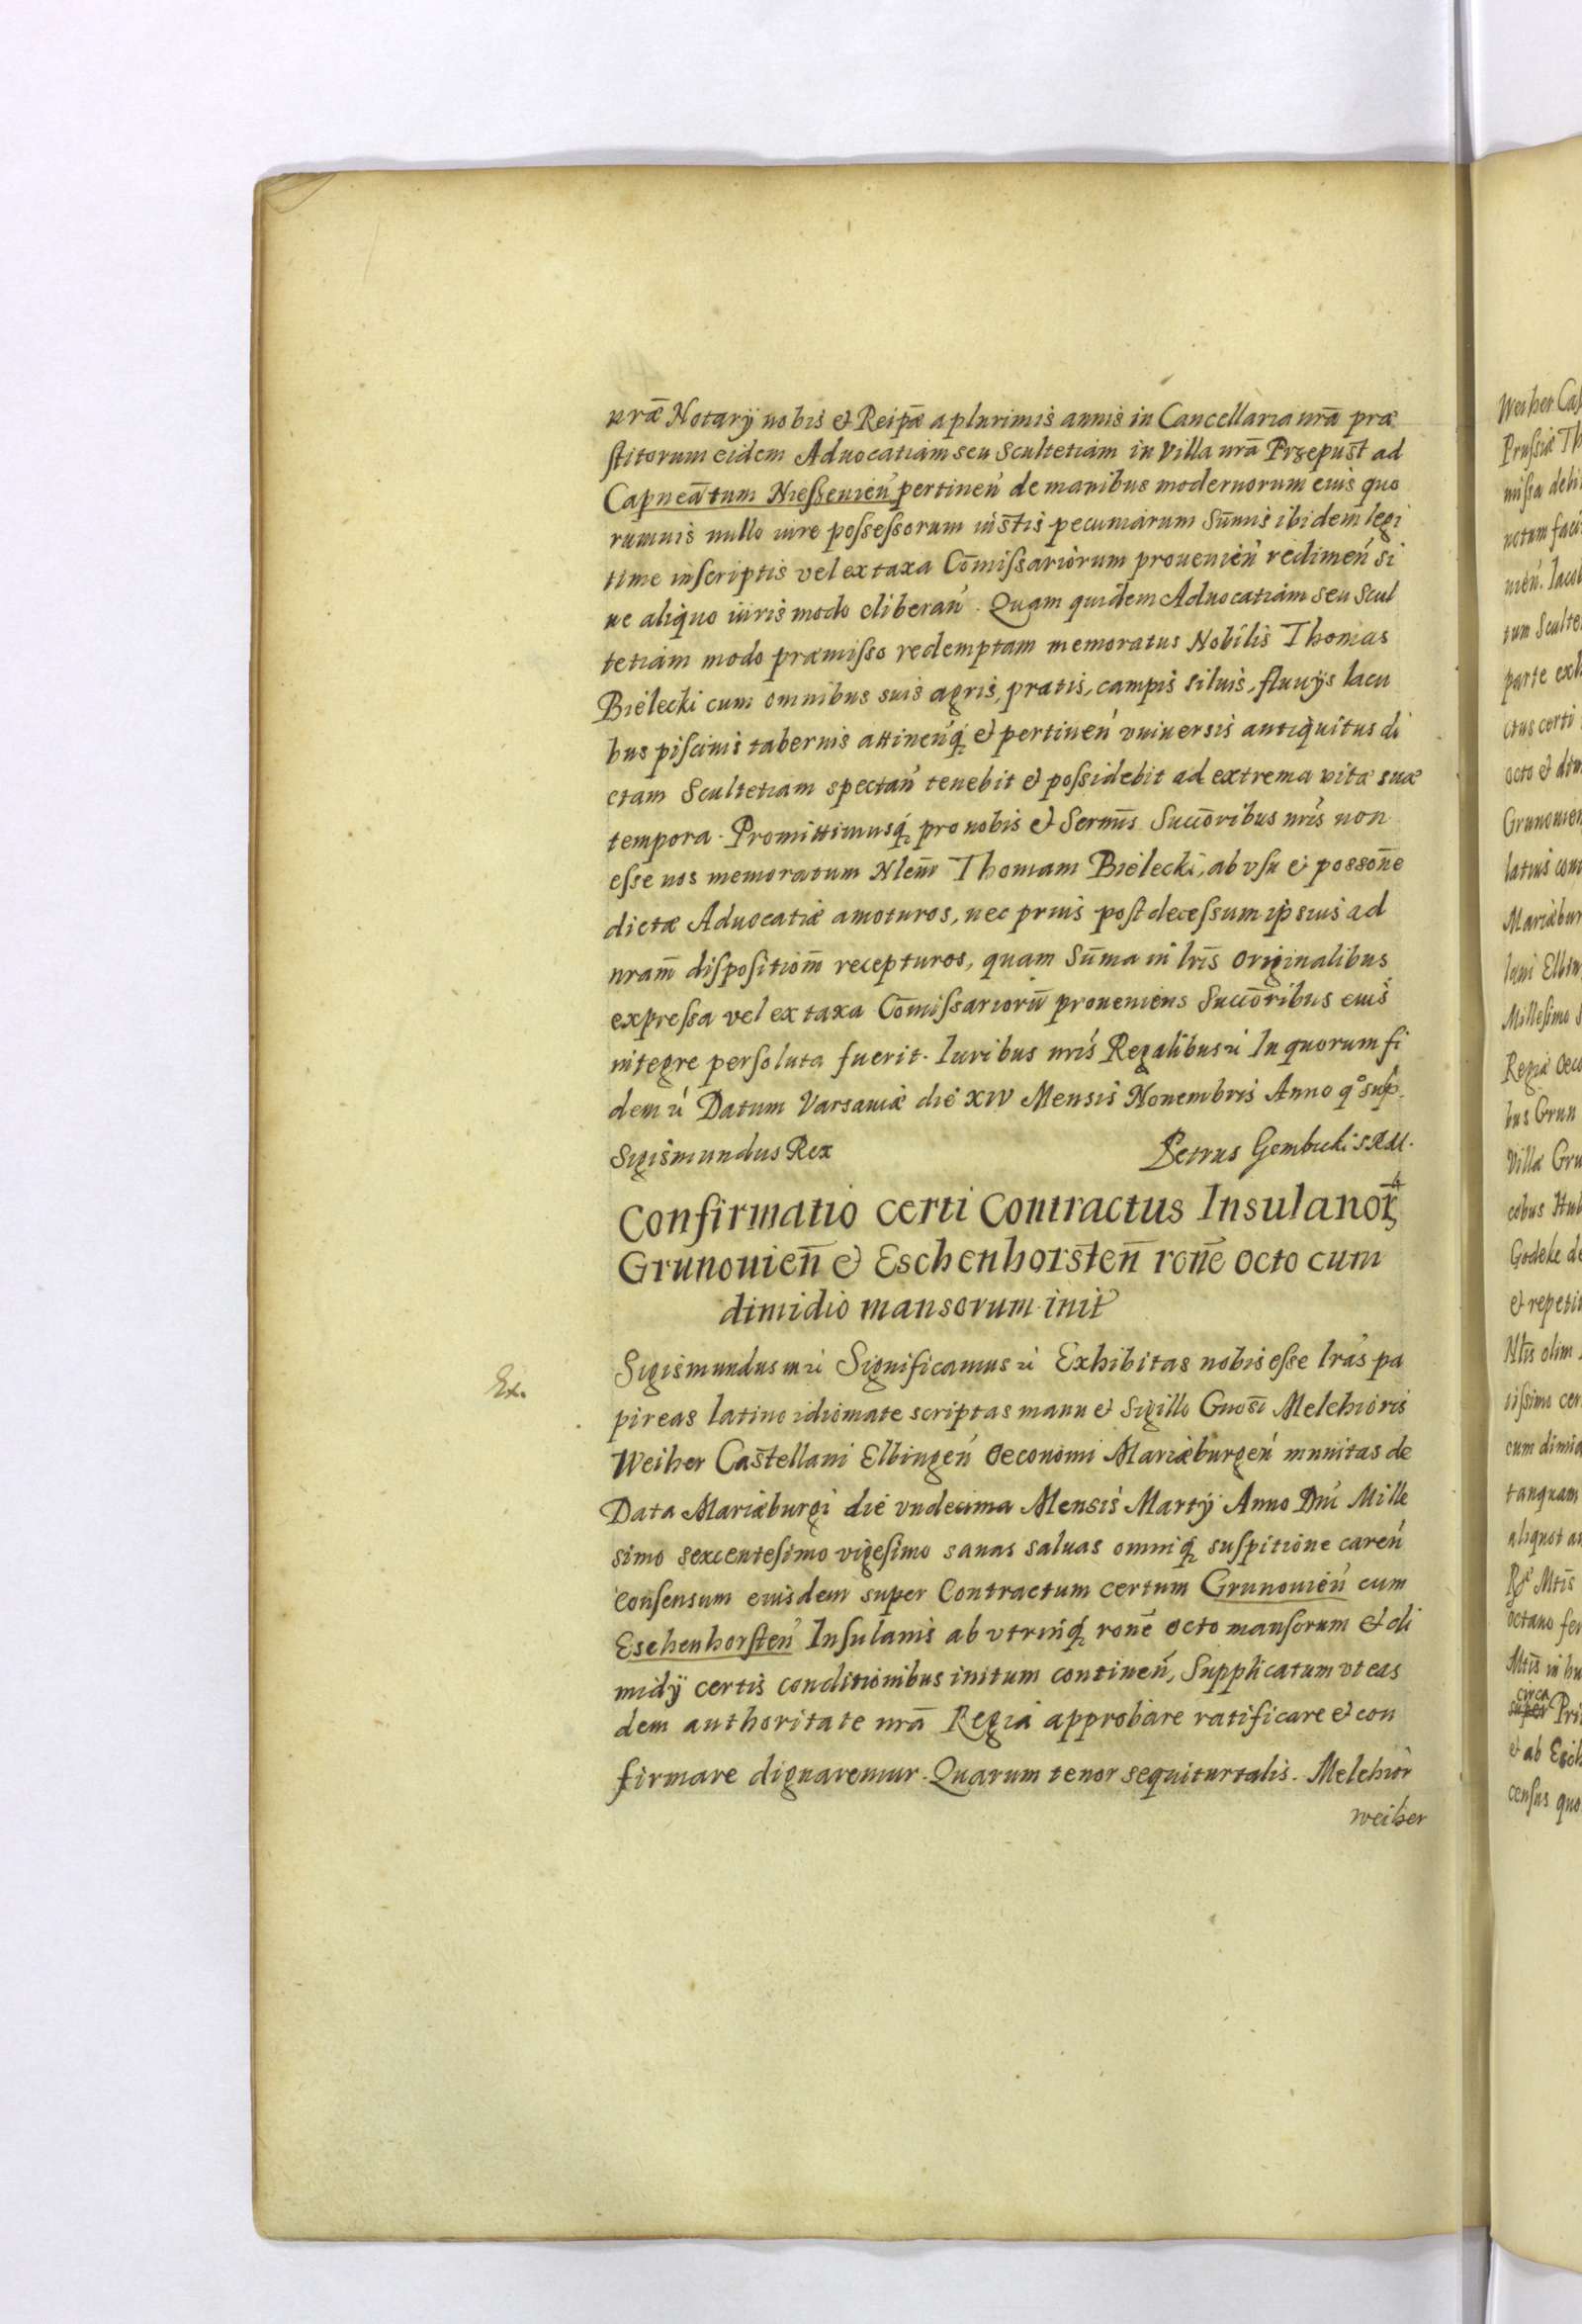 nr̄æ Notarÿ nobis et Reip̄æ a plurimis annis in Cancellaria nrā præ
stitorum eidem Aduocatiam seu Scultetiam in Villa nrā Przepust ad
Capneātum Nießenień pertineń de manibus modernorum eius quo
rumuis nullo iure possessorum iustis pecuniarum Sum̄is ibidem legi
time inscriptis vel ex taxa Com̄issariorum prouenień redimeń si
ue aliquo iuris modo eliberań. Quam quidem Aduocatiam seu Scul
tetiam modo præmisso redemptam memoratus Nobilis Thomas
Bielecki cum omnibus suis agris, pratis, campis siluis, fluuÿs lacu
bus piscinis tabernis attineńq; et pertineń vniuersis antiquitus di
ctam Scultetiam spectań tenebit et possidebit ad extrema vitæ suæ
tempora. Promittimusq; pro nobis et Sermīs Succōribus nrīs non
esse nos memoratum Nlem̄ Thomam Bielecki, ab vsu et possōne
dictæ Aduocatiæ amoturos, nec prius post decessum ipsius ad
nram̄ dispositiom̄ recepturos, quam Sum̄a in lrīs originalibus
expressa vel ex taxa Com̄issariorū proueniens Succōribus eius
integre persoluta fuerit. Iuribus nrīs Regalibus rć In quorum fi
dem rć Datum Varsauiæ die XIV Mensis Nouembris Anno q° sup.
Sigismundus Rex Petrus Gembicki S.R.M.
Confirmatio certi Contractus Insulanoꝝ
Grunouień et Eschenhorsteń rōne octo cum
dimidio mansorum init
Ex.
Sigismundus III rć Significamus rć Exhibitas nobis esse lrās pa
pireas latino idiomate scriptas manu et Sigillo Gnosī Melchioris
Weiher Castellani Elbingeń Oeconomi Mariæburgeń munitas de
Data Mariæburgi die vndecima Mensis Martÿ Anno Dnī Mille
simo sexcentesimo vigesimo sanas saluas omniq; suspitione careń
Consensum eiusdem super Contractum certum Grunouień cum
Eschenhorsteń Insulanis ab vtrinq; rōne octo mansorum et di
midÿ certis conditionibus initum contineń, Supplicatum vt eas
dem authoritate nrā Regia approbare ratificare et con
firmare dignaremur. Quarum tenor sequitur talis. Melchior
weiher